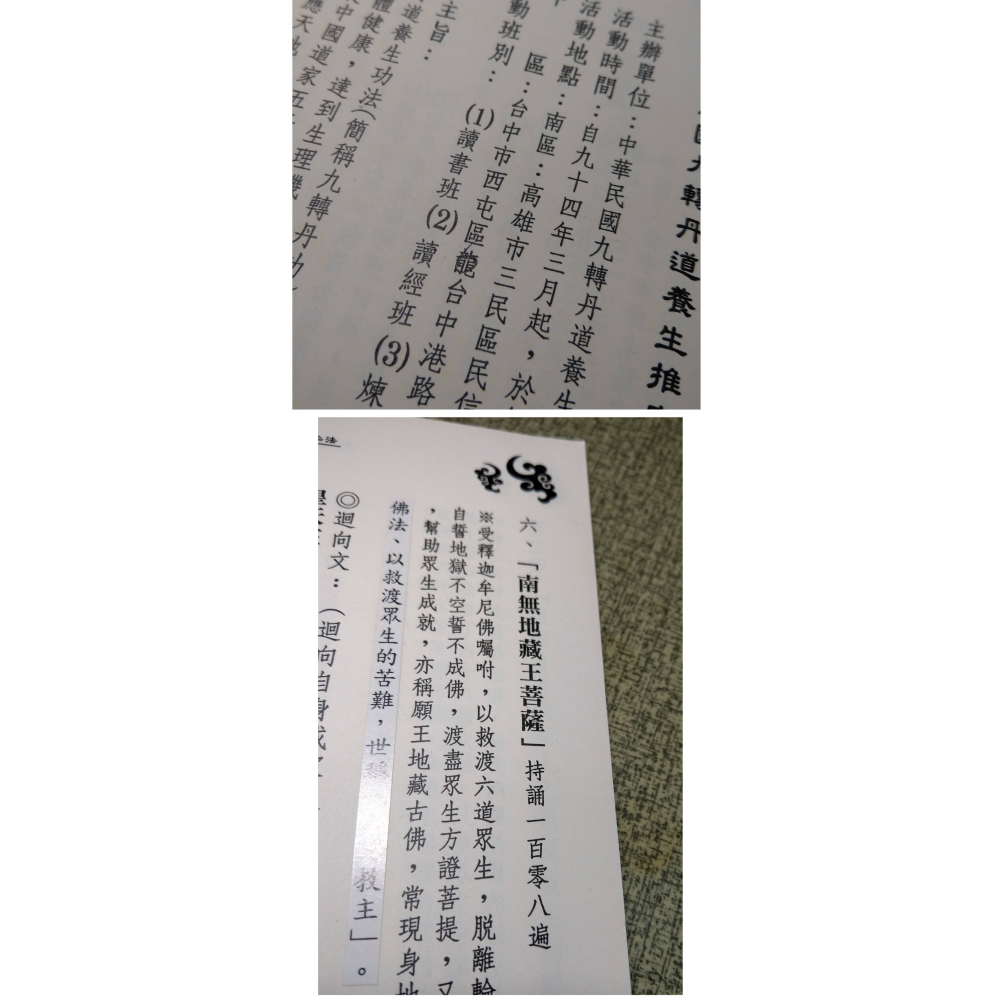 九轉丹道養生推
主辦單位：中華民國九轉丹道養生
活動時間：自九十四年三月起，於
活動地點：南區：高雄市三民區民信
區：台中市西屯區龍台中港路
動班別：(1)讀書班(2)讀經班(3)煉
主旨：
道養生功法(簡稱九轉丹功
體健康，達到生理機
中國道家五
應天地
心法
六、「南無地藏王菩薩」持誦一百零八遍
※受釋迦牟尼佛囑咐，以救渡六道眾生，脱離輪
自誓地獄不空誓不成佛，渡盡眾生方證菩提，又
，幫助眾生成就，亦稱願王地藏古佛，常現身地
佛法、以救渡眾生的苦難，世 教主」。
◎迴向文：（迴向自身或